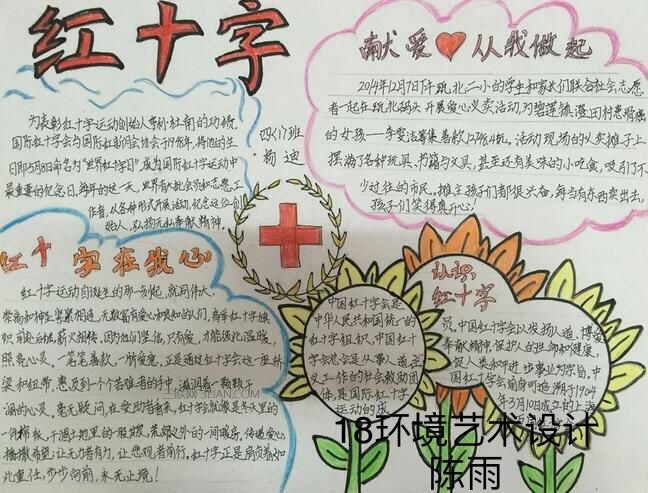 红十字
为表彰红十字运动创始人亨利·杜南的功绩,
国际红十字会与国际红新月会协会于1948年,将他的生
日即5月8日命名为“世界红十字日”,成为国际红十字运动中
最重要的纪念日,每年的这一天,世界有大批会员和志愿工
作者,以各种形式开展活动,纪念这位创
始人,弘扬无私奉献精神。
四(八)班
杨迪
献爱 从我做起
2014年12月7日下午,瓯北二小的学生和家长们联合社会志愿
者一起在瓯北码头开展爱心义卖活动,为碧莲镇澄田村患病
的女孩
活动现场的义卖摊子上
摆满了各好玩具、书籍与文具,甚至还有美味的小吃食,吸引了不
少过往的市民。摊主孩子们都很兴奋,每当有东西卖出去,
孩子们笑得真开心!
红十字在我心
红十字运动自诞生的那一刻起,就同伟大、
崇高和神圣紧紧相连,无数富有爱心和良知的人们,高举红十字旗
帜前赴后继,薪火相传,因为他们坚信,只有爱,才能彼此温暖,
照亮心灵。一笔笔善款,一份份爱意,正是通过红十字会这一座桥
梁和纽带,惠及到一个个苦难者的手中,滋润着一颗颗干
涸的心灵。毫无疑问,在受助者看来,红十字会就像是冬天里的
一件棉袄,干涸土地里的一股甘泉,荒郊之外的一间暖房,传递爱心
播撒希望,让无力者有力,让悲观者前行。红十字正是肩负着如
此重任,步步向前,永无止境!
中国红十字会是
中华人民共和国统一的
红十字组织,中国红十
字会总会是从事人道主
义工作的社会救助团
体,是国际红十字
运动的成
认识
红十字
员,中国红十字会以发扬人道、博爱、
奉献精神,保护人的生命和健康,
促进人类和平进步事业为宗旨。中
国红十字会自身可追溯于1904
年3月10日成立的上海
18环境艺术设计
陈雨